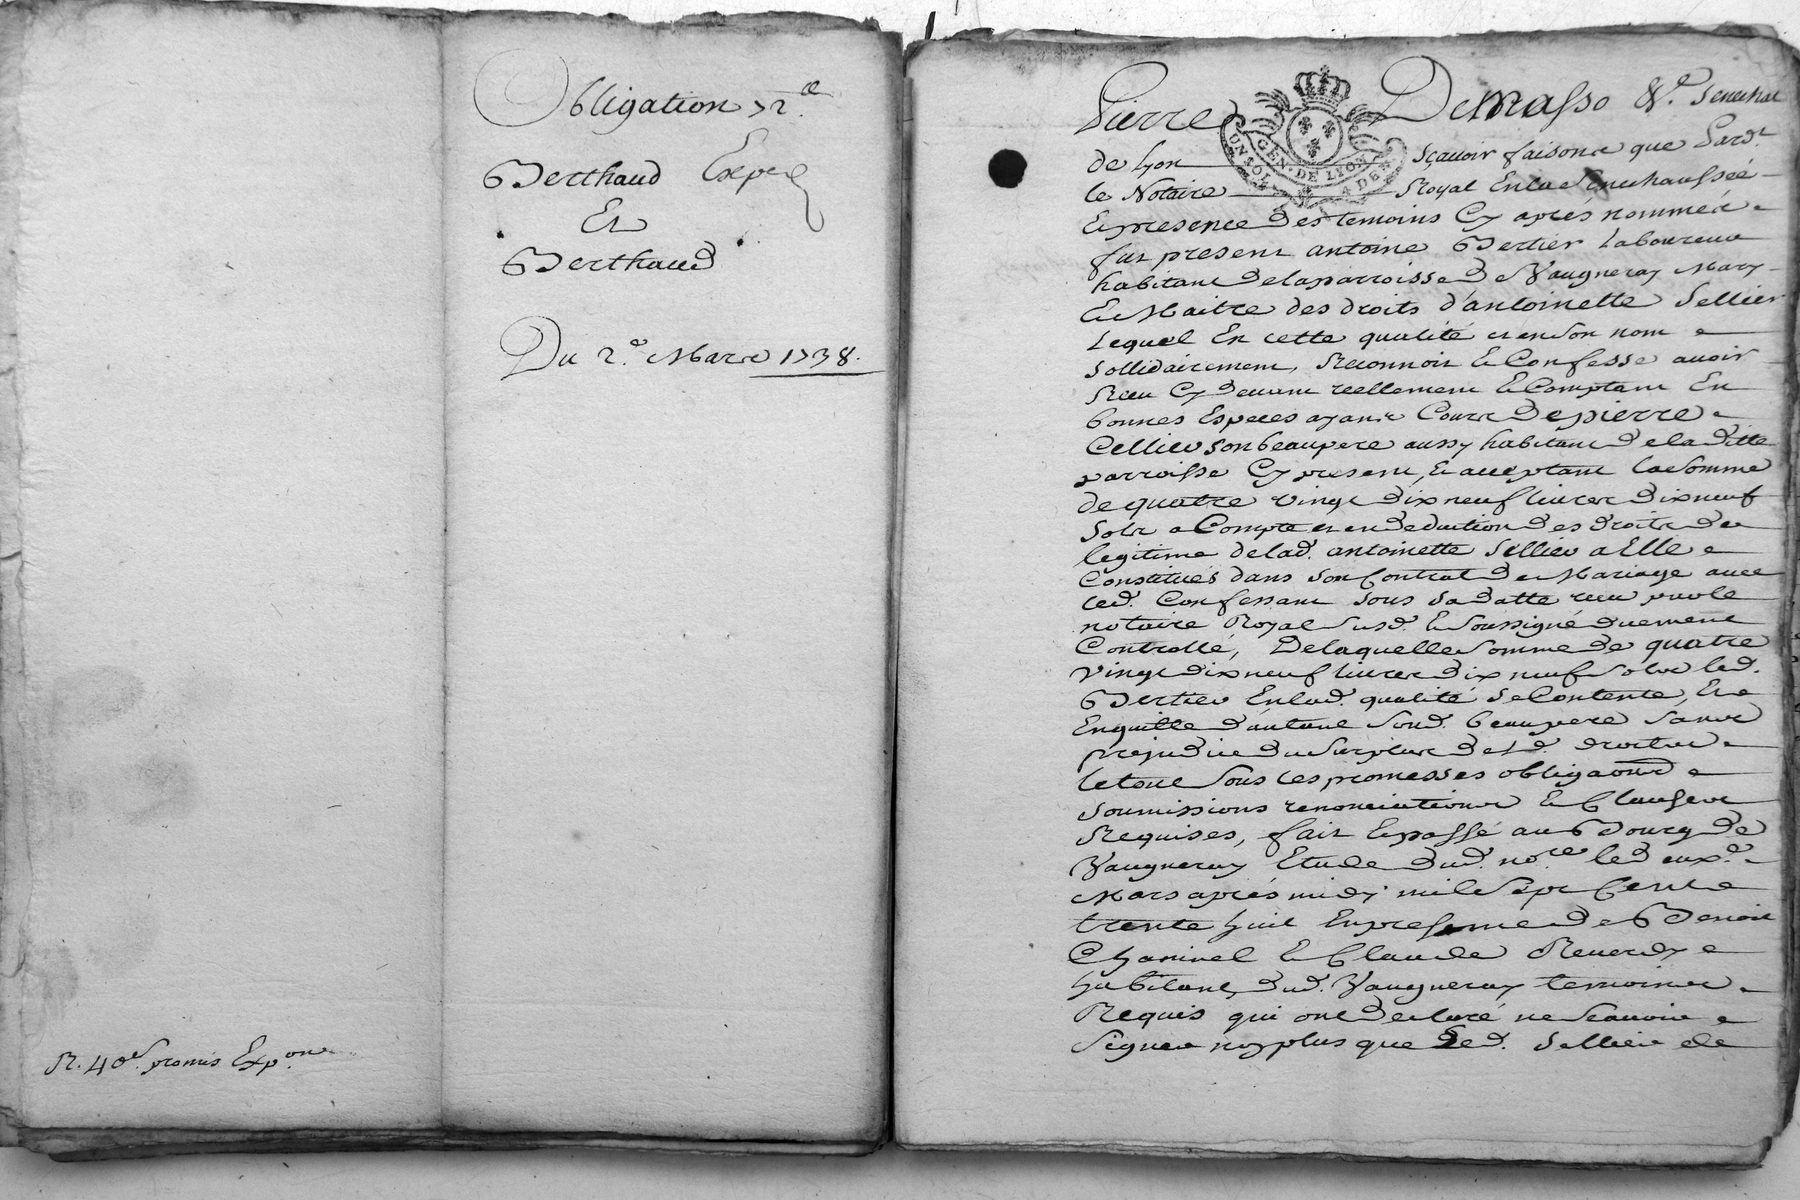 Obligation 72.lt
Berthaud Exped
Et
Berthaud
Du 2.e Mars 1738.
R. 40s. promis Exp.on
Pierre Demasso &c. Senechal
de Lyon sçavoir faisons que Pard.t
le Notaire Royal En la Senechaussée
GEN. DE LYON
UN SOL 4 DE
En presence des temoins Cy aprés nommés
fut present antoine Bertier Laboureur
habitant de la parroisse de Vaugneray Mary
Et Maitre des droits d'antoinette Sellier
Lequel En cette qualité et en son nom
sollidairement, Reconnoit Et Confesse avoir
Receu Cy devant reellement Et Comptant En
bonnes Especes ayant Cours de pierre
Cellier son beaupere aussy habitant de la ditte
parroisse Cy present, Et acceptant la somme
de quatre vingt dix neuf livres dix neuf
sols a Compte et en deduction des droits de
legitime de lad. antoinette Sellier a Elle
Constitués dans son Contrat de Mariage avec
led. Confessant sous sa datte receu par le
notaire Royal susd. Et soussigné duement
Controllé, De laquelle somme de quatre
vingt dix neuf livres dix neuf sols led.
Bertier En lad. qualité se Contente, Et
En quitte d'autant sond. beaupere sans
prejudice du surplus desd. droits
le tout sous les promesses obligaons
soumissions renonciations Et Clauses
Requises, fait Et passé au Bourg de
Vaugneray Etude dud. no.re led eux.e
Mars aprés midy mil Sept Cent
trente huit En presence de Benoit
Chaninel Et Claude Reverdy
habitants dud. Vaugneray temoins
Requis qui ont declaré ne scavoir
signer non plus que led. Sellier de